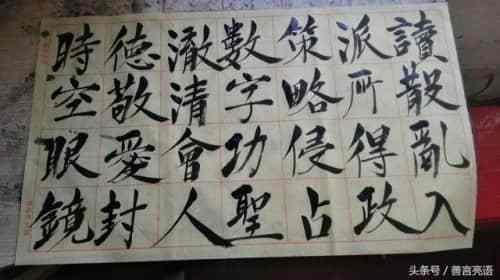 讀散亂入
派所得政
策略侵占
數字功聖
澈清會人
德敬愛封
時空眼鏡
头条号 / 善言亮语